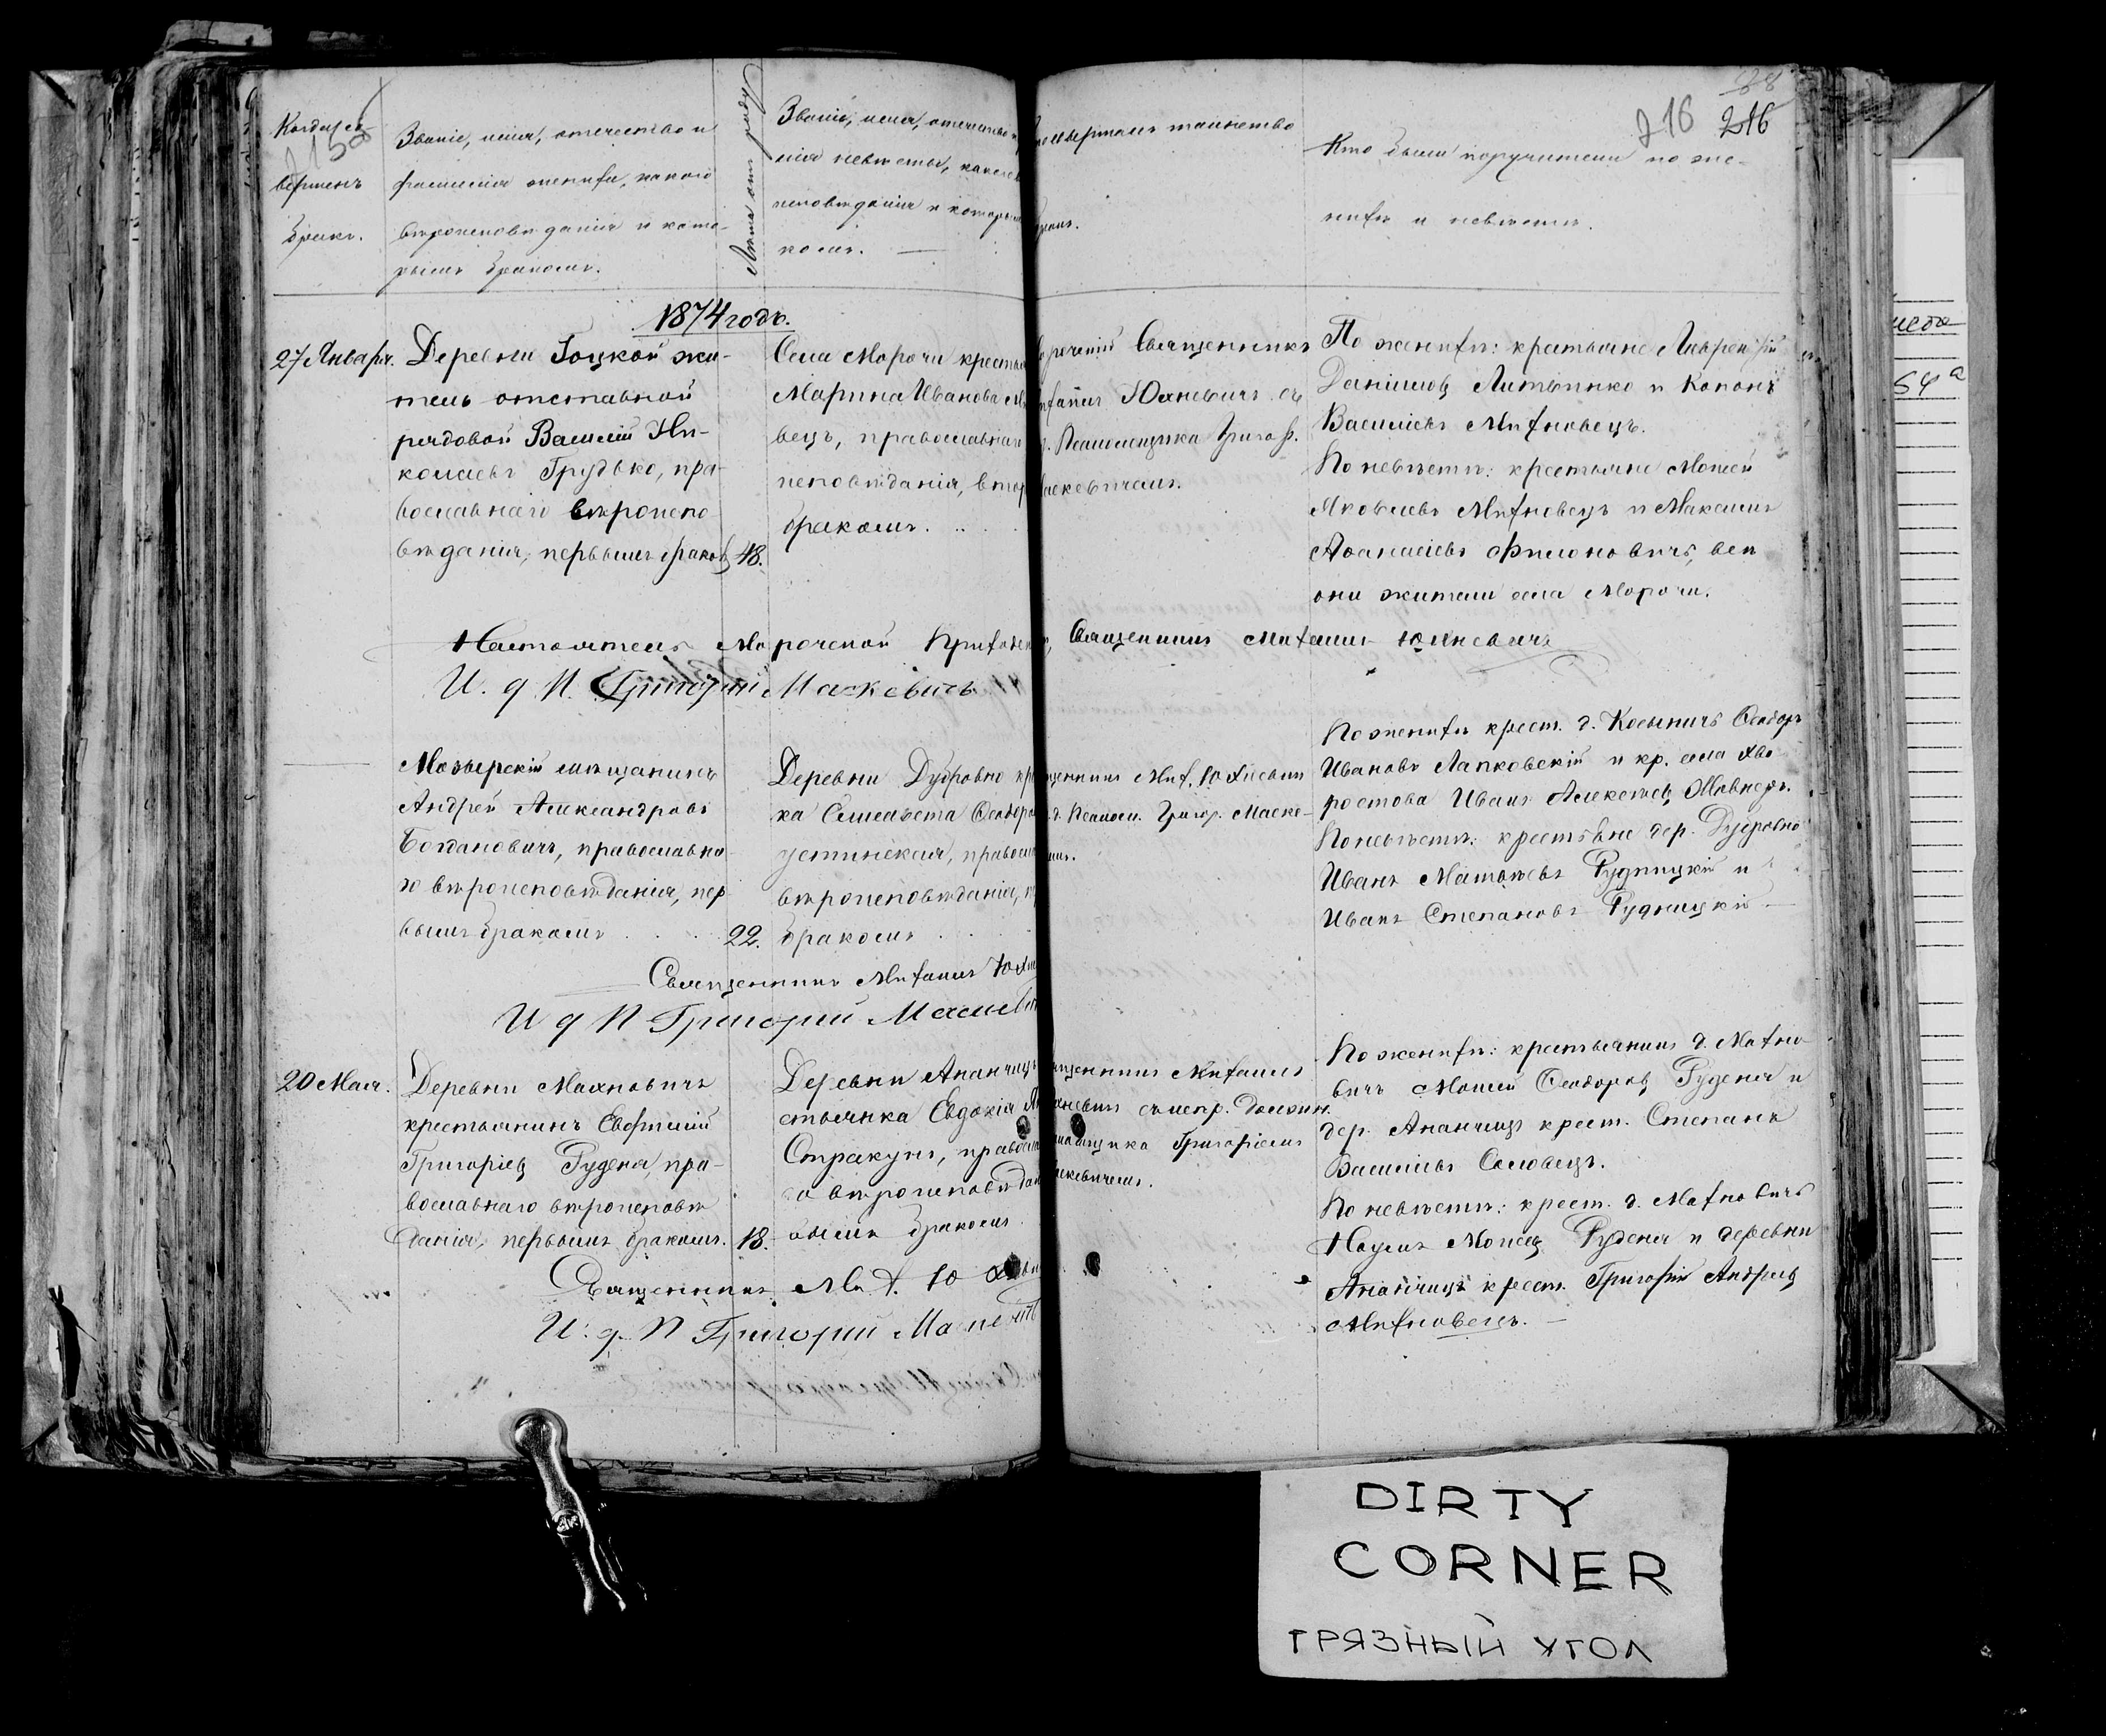 216 216
Когда со-
вершенъ
бракъ.
Званіе, имя, отчество и
фамилія жениха, какого
вѣроисповѣданія и кото-
рымъ бракомъ.
Лѣта отъ роду
Званіе, имя, отчество и
лія невѣсты, какого
исповѣданія и которымъ
комъ.
совершалъ таинство
Кто были поручители по же-
нихѣ и невѣстѣ.
1874 годъ.
27 Января.
Деревни Гоцкой жи-
тель отставной
рядовой Василій Ни-
колаевъ Грудько, пра-
вославнаго вѣроиспо-
вѣданія, первымъ браком
48.
Села Морочи крестьян
Марина Иванова Ми
вецъ, православнаго
исповѣданія, втор
бракомъ.
Священникъ
Юхневичъ съ
Псаломщика Григор.
Маскевичемъ.
По женихѣ: крестьяне Лаврентій
Даніиловъ Литвинко и Кононъ
Васильевъ Михновецъ.
По невѣстѣ: крестьяне Моисей
Яковлевъ Михновецъ и Максимъ
Аѳанасіевъ Филоновичъ, всѣ
они жители села Морочи.
Настоятель Морочской Приход Священникъ Митфанъ Юхневичъ
И. д П. Григорій Маскевичъ
Мозырскій мѣщанинъ
Андрей Александровъ
Богдановичъ, православна-
го вѣроисповѣданія, пер
вымъ бракомъ
22.
Деревни Дубровно кр
ка Елисавета Ѳеодоро
устинская, правосл
вѣроисповѣданія, п
бракомъ
щенникъ Мит. Юхневич
Псалом. Григор. Маске-
По женихѣ крест. д. Косыничъ Ѳеодоръ
Ивановъ Лапковскій и кр. села Хво
ростова Иванъ Алексѣевъ
По невѣстѣ: крестьяне дер. Дубровно
Иванъ Матвѣевъ Рудницкій и
Иванъ Степановъ Рудницкій
Священникъ Митфанъ Юхне
И д П Григорій Маскевич
20 Мая.
Деревни Махновичъ
крестьянинъ Евфимій
Григоріевъ Руденя, пра-
вославнаго вѣроисповѣ
данія, первымъ бракомъ.
18.
Деревни Ананчицъ
стьянка Евдокія
Стракунъ, правосла
го вѣроисповѣдан
вымъ бракомъ
щенникъ Митфанъ
хневичъ съ испр. должн.
ломщика Григоріемъ
аскевичемъ.
По женихѣ: крестьянинъ д. Махно-
вичъ Моисей Ѳеодоровъ Руденя и
дер. Ананчицъ крест. Степанъ
Васильевъ Соловецъ.
По невѣстѣ: крест. д. Махновичъ
Наумъ Руденя и деревни
Ананчицъ крест. Григорій Андреевъ
Михновецъ.
Священникъ Мит. Юхневи
И. д. П Григорій Маскевич
DIRTY
CORNER
ГРЯЗНЫЙ УГОЛ